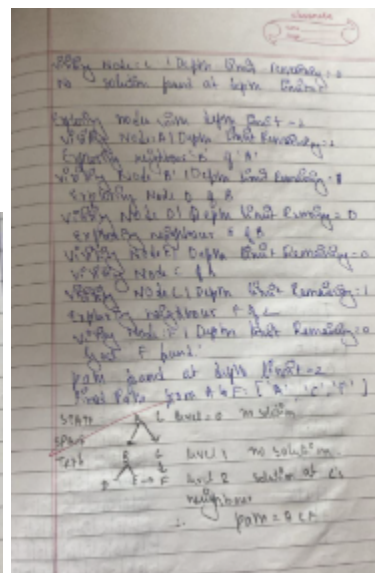 Visiting Node: C | Depth limit Remaining = 0
no solution found at depth limit
Exploring nodes with depth limit = 2
Visiting Node: A | Depth limit Remaining = 2
Exploring neighbour 'B' of 'A'
Visiting Node 'B' | Depth limit Remaining = 1
Exploring Node D of B
Visiting Node D | Depth limit Remaining = 0
Exploring neighbour E of B
Visiting Node E | Depth limit Remaining = 0
Visiting Node C of A
Visiting Node C | Depth limit Remaining = 1
Exploring neighbour F of C
Visiting Node: F | Depth limit Remaining = 0
Goal F found.
path found at depth limit = 2
Final Path from A to F: ['A', 'C', 'F']
level = 0 no solution
level 1 no solution
level 2 solution at C's
neighbour
path =